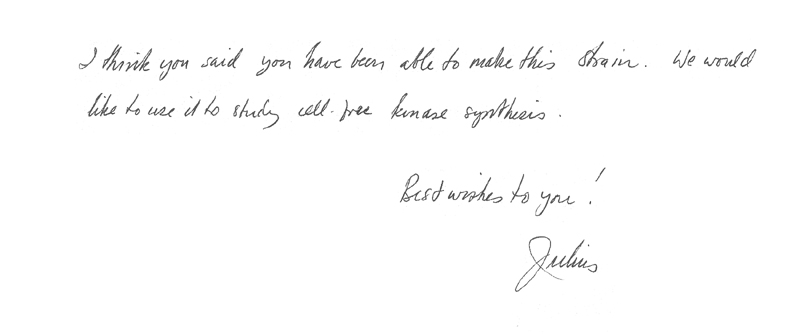 I think you said you have been able to make this strain. We would
like to use it to study cell-free kinase synthesis.
Best wishes to you!
Julius